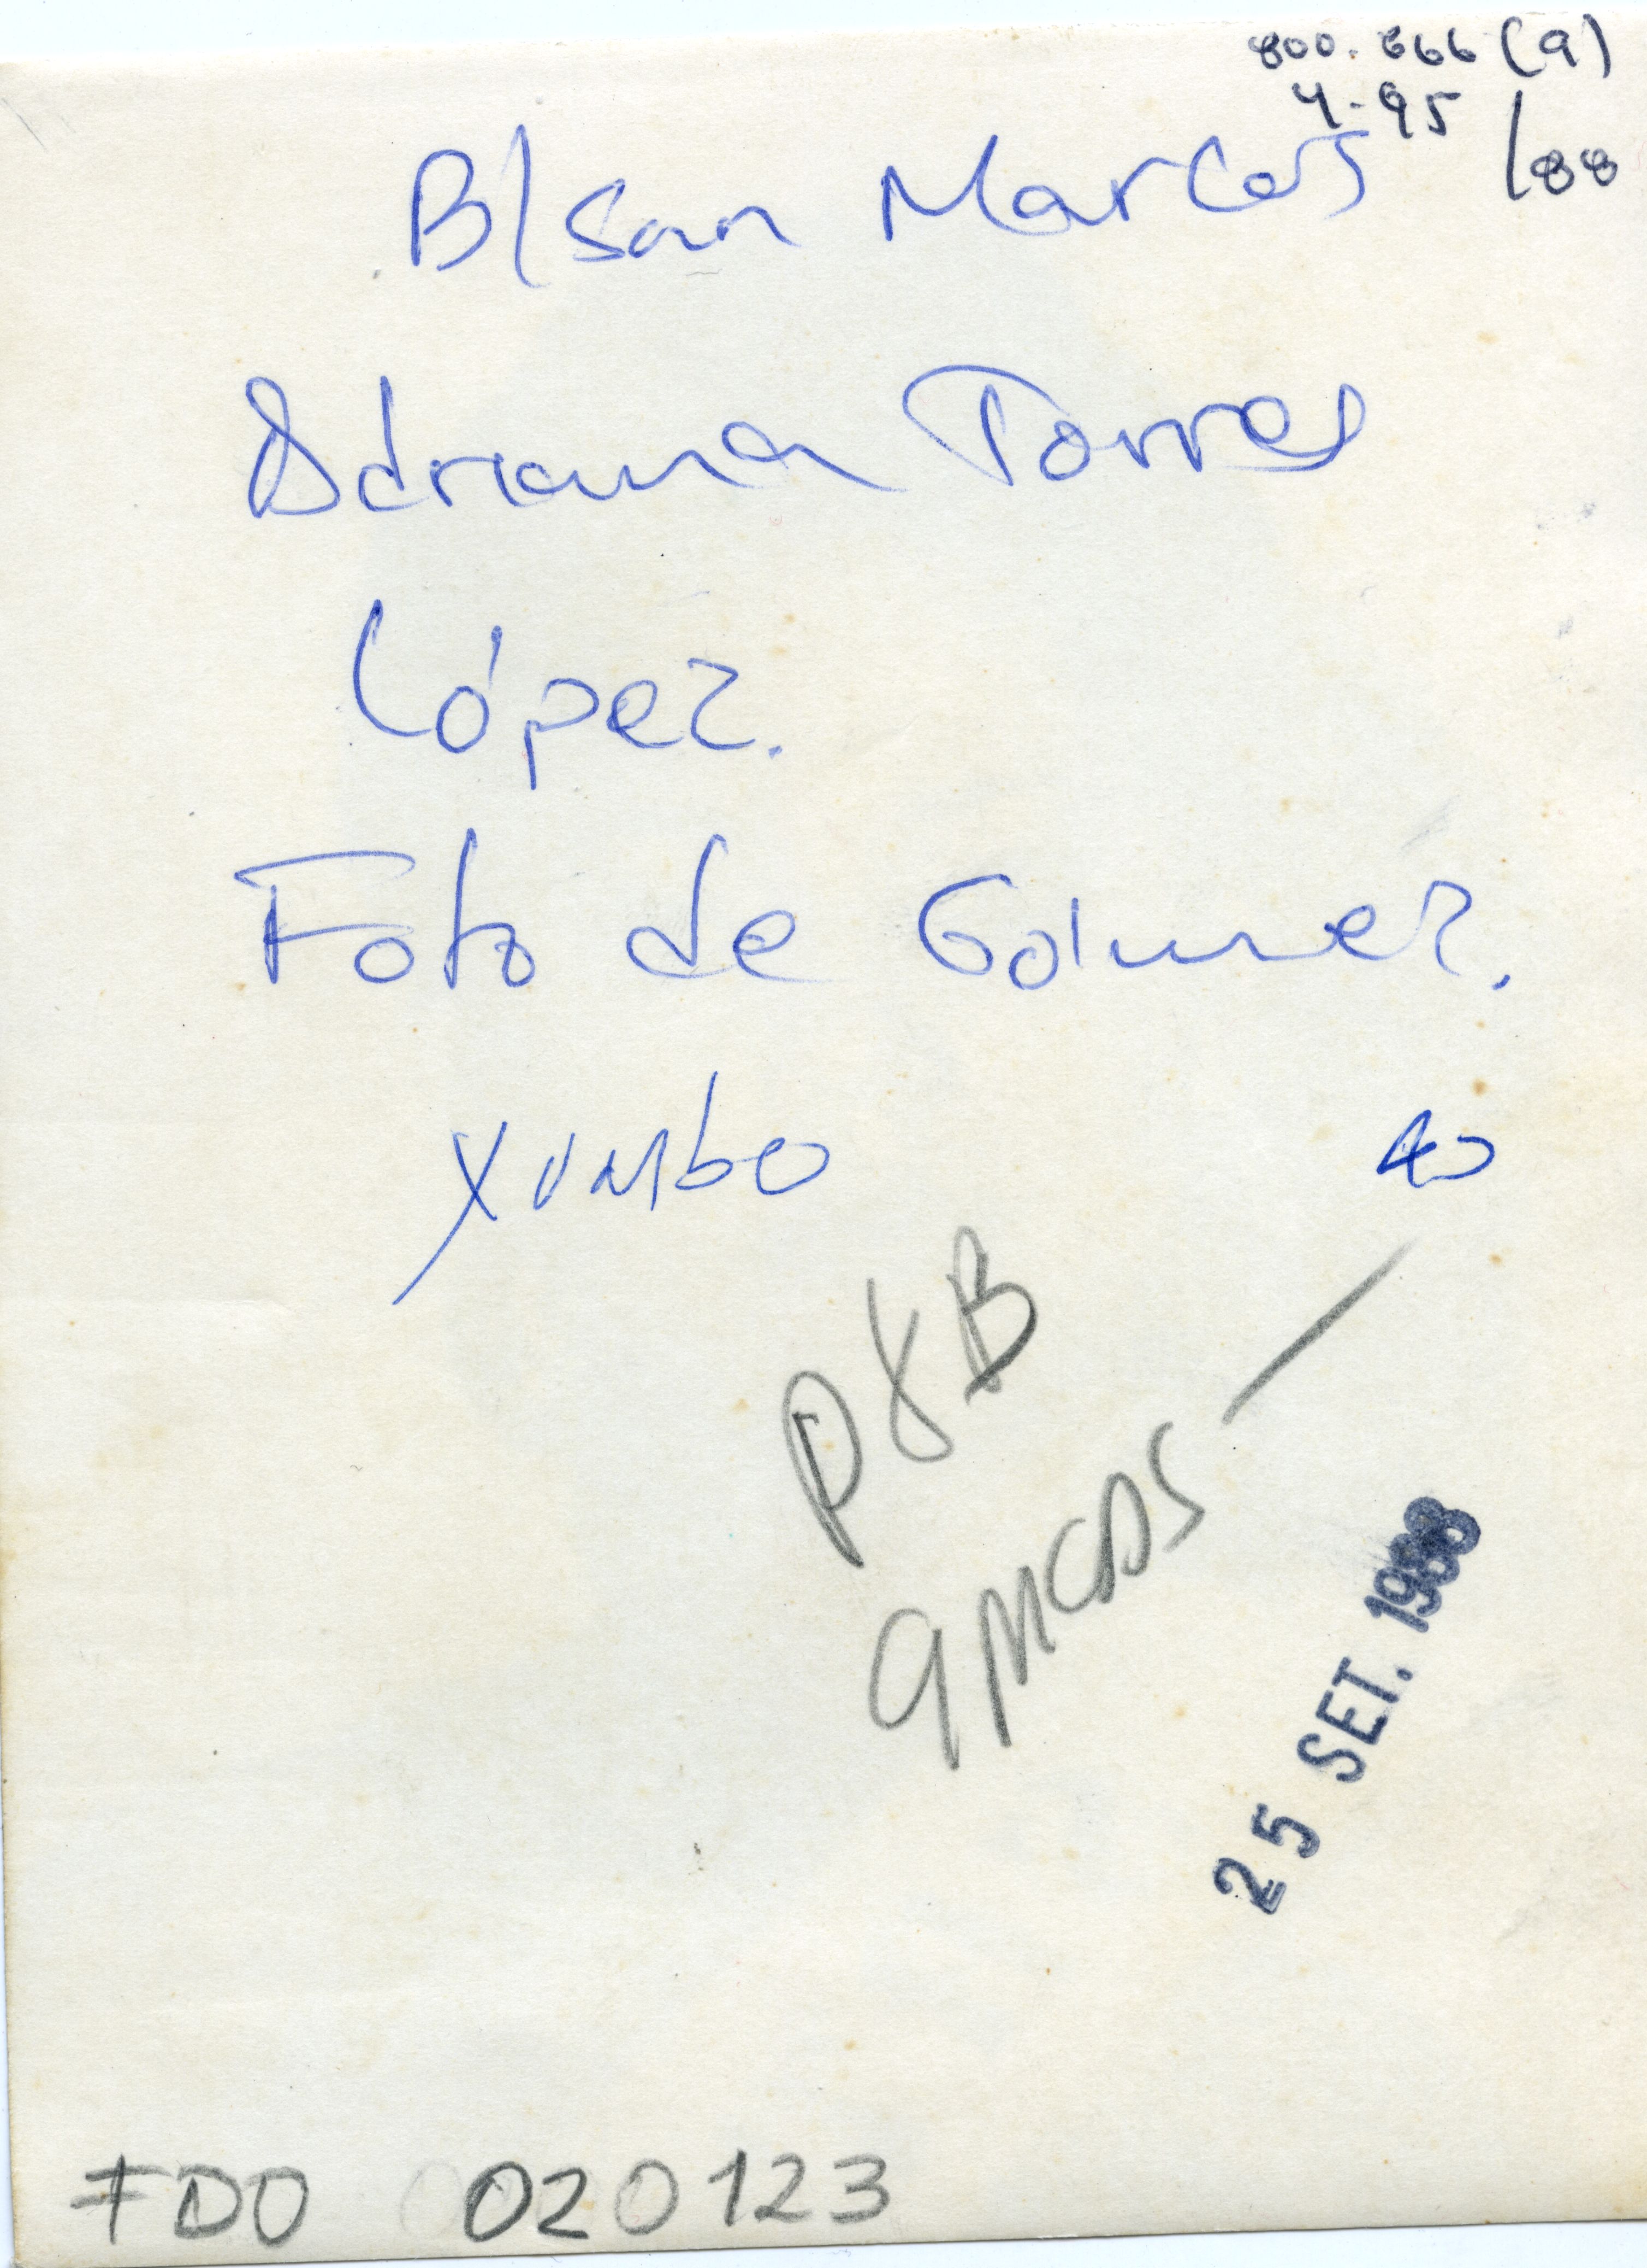 800.666 (a)
4-95 /88
B/San Marcos
Adriana Torres
López.
Foto de Gómez.
Yumbo
40
P&B
9 MCDS —
25 SET. 1988
FDO 020123